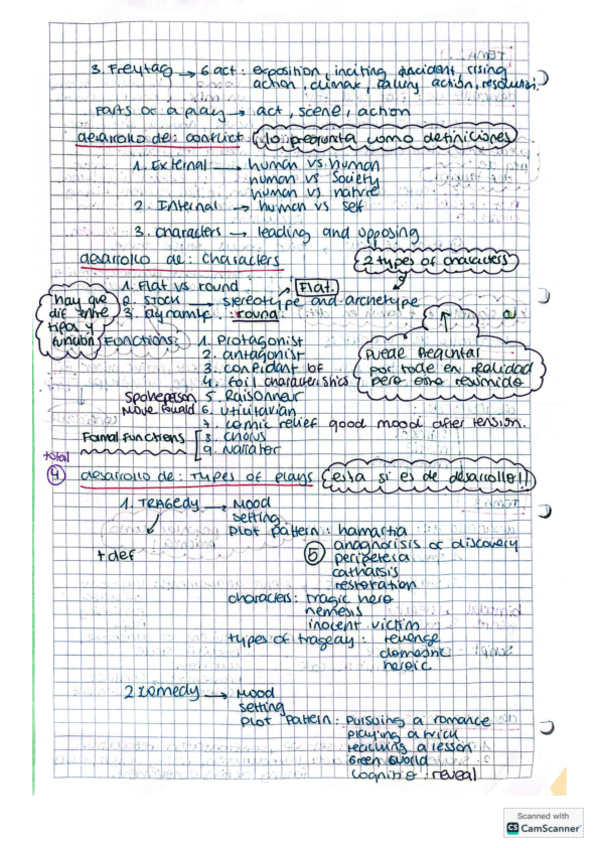 3. Freytag → 6 act: exposition, inciting incident, rising
action, climax, falling action, resolution.
Parts of a play → act, scene, action
desarrollo de: conflict (lo pregunta como definiciones)
1. External → human vs human
human vs society
human vs nature
2. Internal → human vs self
3. characters → leading and opposing
desarrollo de: characters
2 types of characters
1. Flat vs round
Flat.
2. stock → stereotype and archetype
3. dynamic. round
hay que
dif entre
tipos y
función
Functions:
1. Protagonist
2. antagonist
3. confidant of
4. foil characteristics
Spokeperson 5. Raisonneur
Move foward 6. utilitarian
7. comic relief good mood after tension.
Formal Functions
8. chorus
9. narrater
Puede preguntar
por todo en realidad
pero esto resumido
total
4
desarrollo de: types of plays (esta si es de desarrollo!!)
1. TRAGEDY → Mood
setting
plot pattern: hamartia
+ def
5
anagnorisis or discovery
peripeteia
catharsis
restoration
characters: tragic hero
nemesis
inocent victim
types of tragedy: revenge
domestic
heroic
2 comedy → Mood
setting
Plot Pattern: Pursuing a romance
playing a trick
teaching a lesson
Green world
cognitio: reveal
Scanned with
CS CamScanner